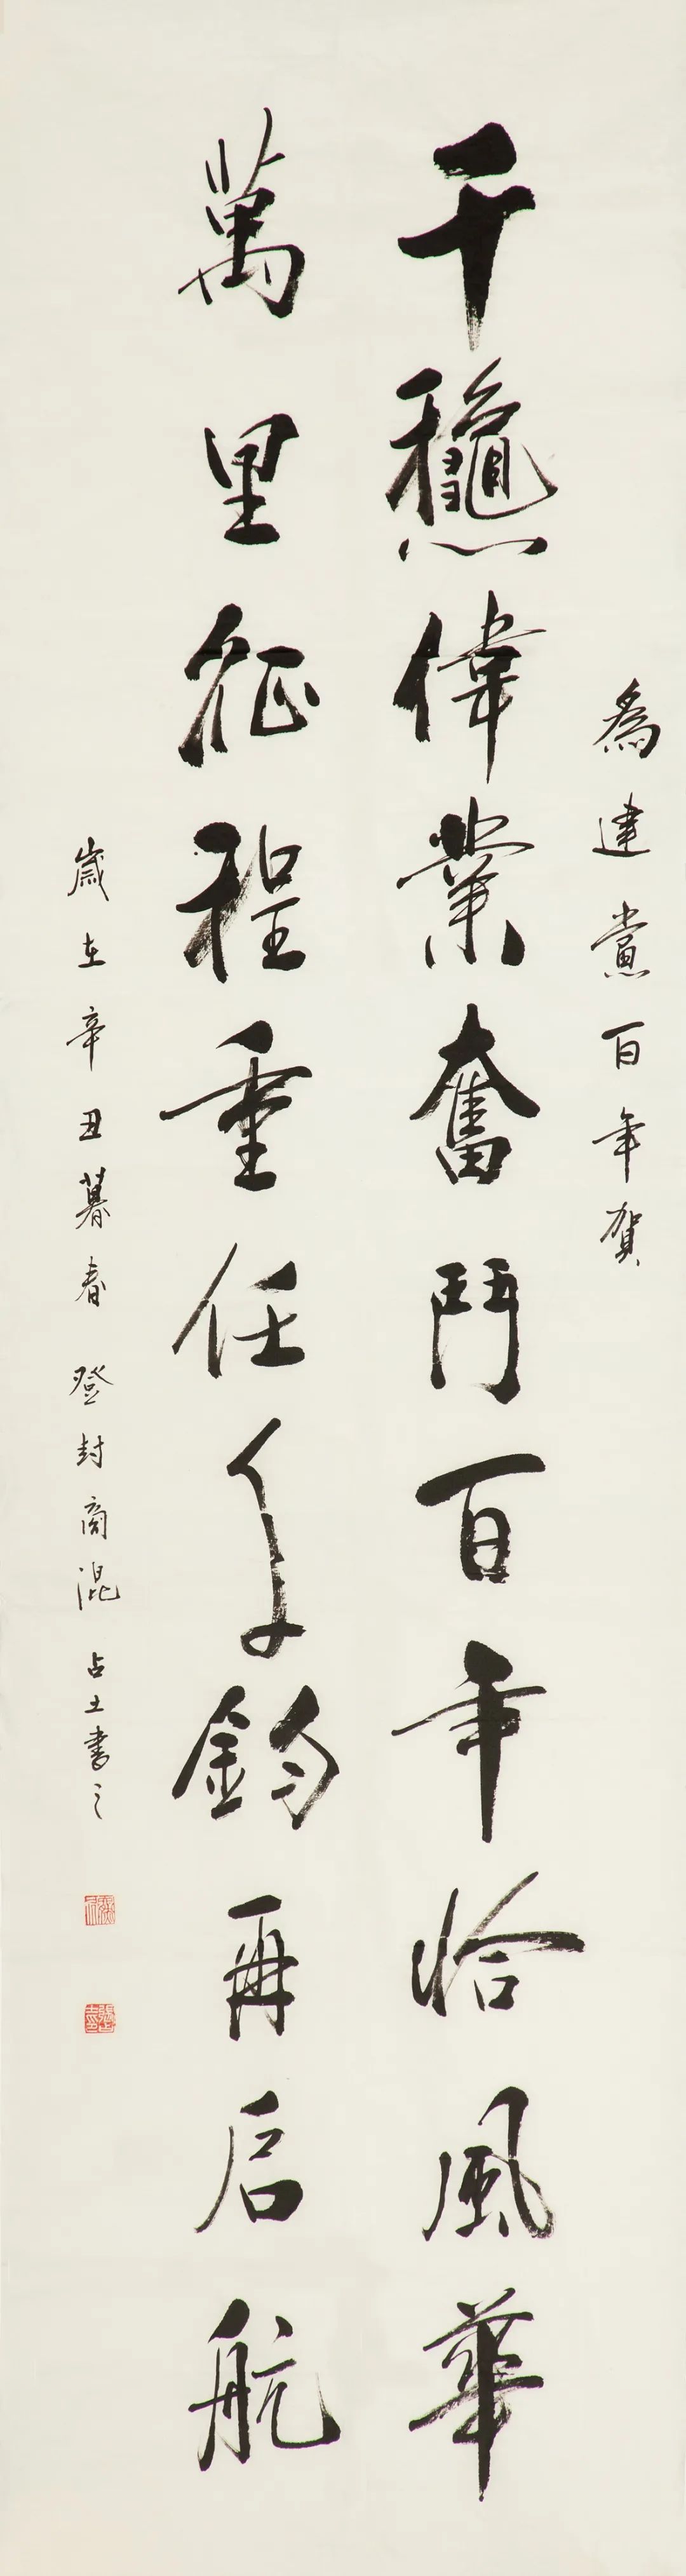 為建黨百年賀
千龝偉業奮鬥百年恰風華
萬里征程重任千鈞再启航
歲在辛丑暮春 登封商混 占土書之